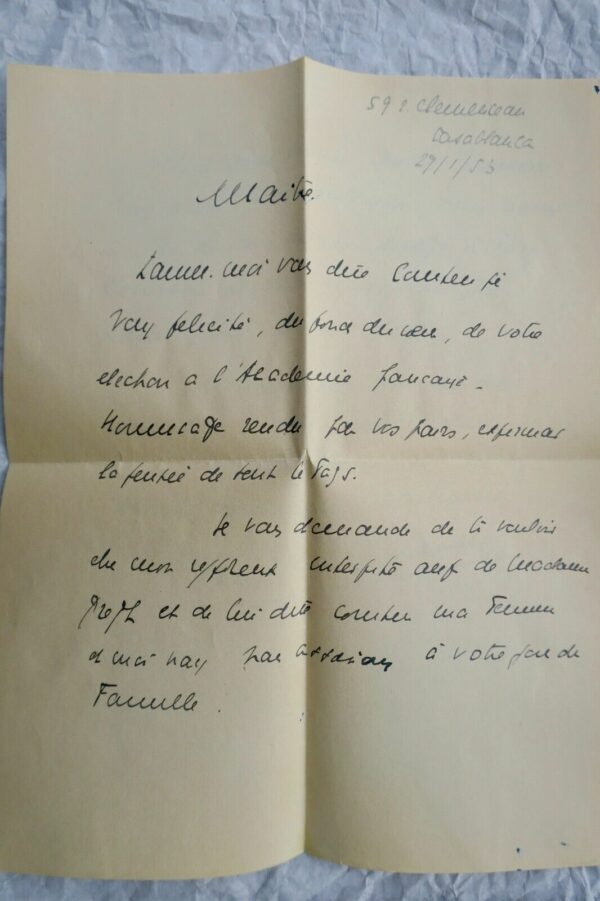 59 r. Clemenceau
Casablanca
29/1/53
Maitre.
Laissez-moi vous dire combien je
vous félicite, du fond du cœur, de votre
élection à l'Académie française.
Hommage rendu par vos pairs, exprimant
la pensée de tout le Pays.
Je vous demande de
mon interprète auprès de Madame
Gregh et de lui dire combien ma Femme
et moi nous nous associons à votre joie de
Famille.